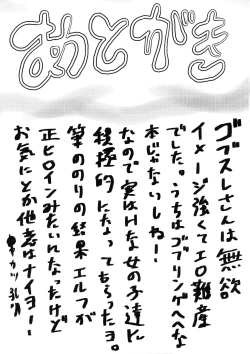 あとがき
ゴブスレさんは無欲
イメージ強くてエロ難産
でした。うちはゴブリンゲへへな
本じゃないしね!
なので実はHな女の子達に
積極的になってもらったョ。
筆ののりの結果エルフが
正ヒロインみたいんなったけど
お気にとか他意はナイヨー!